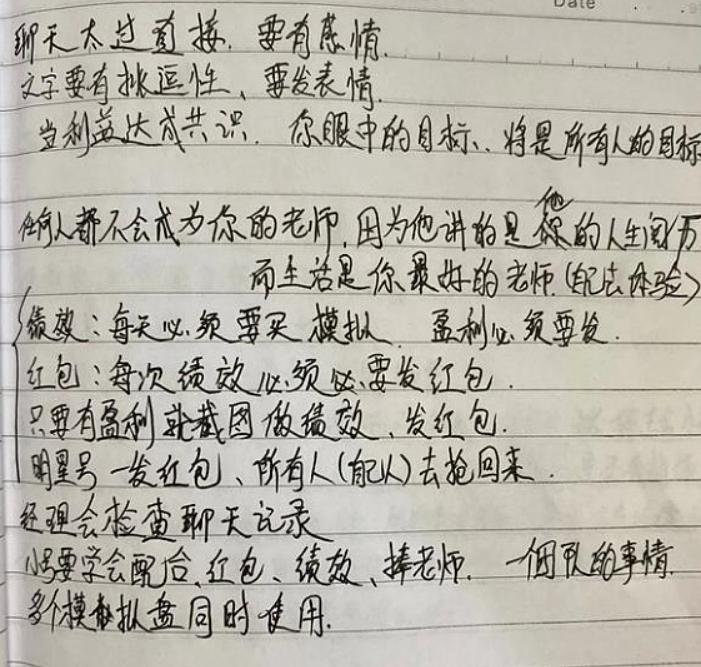 Date
聊天太过直接. 要有感情.
文字要有挑逗性、要发表情.
当利益达成共识. 你眼中的目标.. 将是所有人的目标
任何人都不会成为你的老师, 因为他讲的是他的人生阅历
而生活是你最好的老师. (自己去体验)
绩效: 每天必须要买模拟. 盈利必须要发.
红包: 每次绩效必须必要发红包.
只要有盈利就截图做绩效、发红包.
明星号一发红包、所有人(自己人)去抢回来.
经理会检查聊天记录
小号要学会配合、红包、绩效、捧老师. 一个团队的事情.
多个模拟盘同时使用.